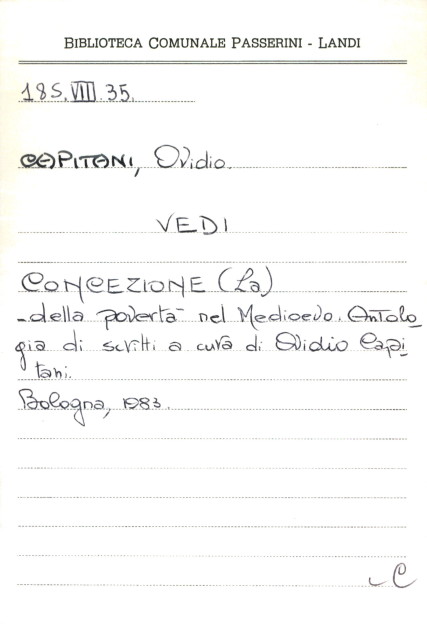 BIBLIOTECA COMUNALE PASSERINI - LANDI
185.VIII.35.
CAPITANI, Ovidio.
VEDI
CONCEZIONE (La)
-della povertà nel Medioevo. Antolo
gia di scritti a cura di Ovidio Capi
tani.
Bologna, 1983.
C